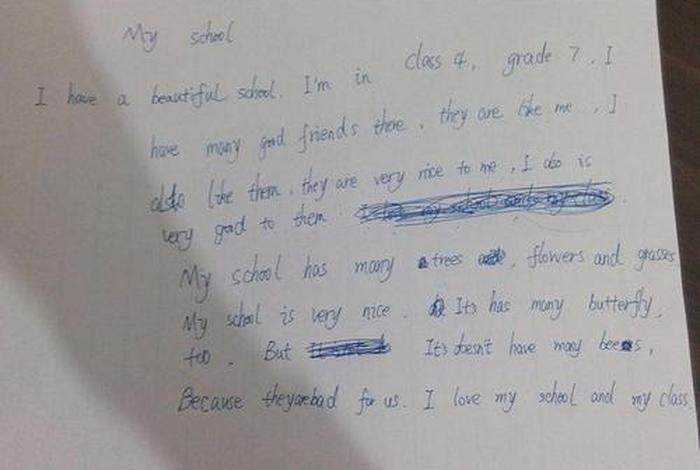 My school
I have a beautiful school. I'm in class 4, grade 7. I
have many good friends there, they are like me, I
also like them, they are very nice to me, I also is
very good to them.
My school has many trees, flowers and grasses
My school is very nice. It's has many butterfly,
too. But It's doesn't have many bees,
Because they are bad for us. I love my school and my class.